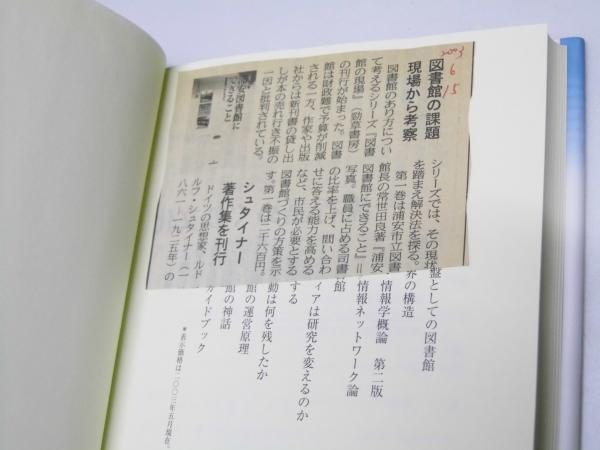 2003
6
15
図書館の課題
現場から考察
図書館のあり方につい
て考えるシリーズ『図書
館の現場』(勁草書房)
の刊行が始まった。図書
館は財政難で予算が削減
される一方、作家や出版
社からは新刊書の貸し出
しが本の売れ行き不振の
一因と批判されている。
浦安図書館に
できること
シリーズでは、その現状
を踏まえ解決法を探る。
第一巻は浦安市立図書
館長の常世田良著『浦安
図書館にできること』=
写真。職員に占める司書
の比率を上げ、問い合わ
せに答える能力を高める
など、市民が必要とする
図書館づくりの方策を示
す。第一巻は二千六百円。
シュタイナー
著作集を刊行
ドイツの思想家、ルド
ルフ・シュタイナー(一
八六一―一九二五年)の
盤としての図書館
界の構造
情報学概論 第二版
情報ネットワーク論
館
ィアは研究を変えるのか
する
動は何を残したか
館の運営原理
館の神話
ガイドブック
*表示価格は二〇〇三年五月現在。